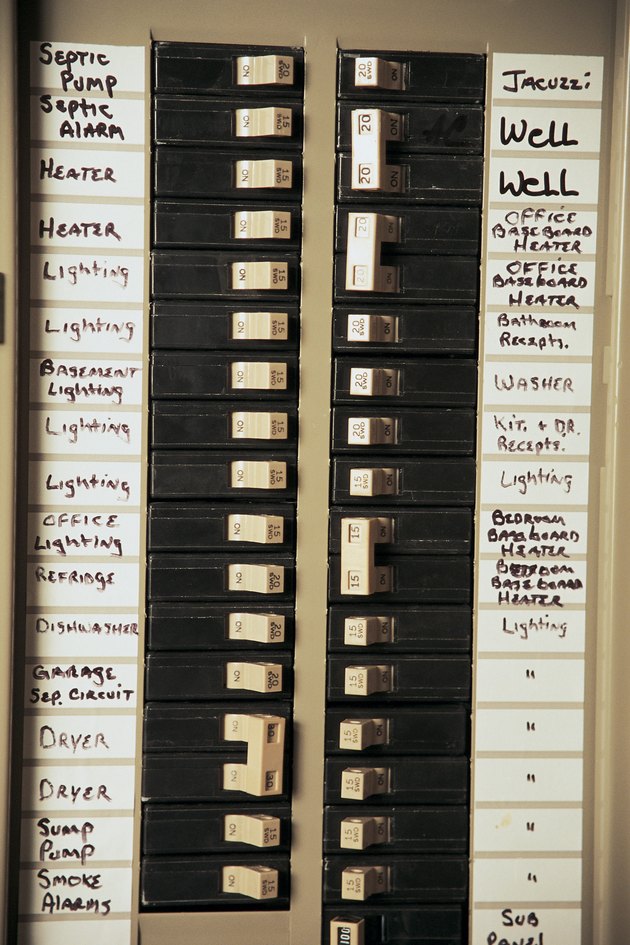 SEPTIC
PUMP
SEPTIC
ALARM
HEATER
HEATER
Lighting
Lighting
BASEMENT
Lighting
Lighting
Lighting
OFFICE
Lighting
REFRIDGE
DISHWASHER
GARAGE
SEP. CIRCUIT
DRYER
DRYER
SUMP
PUMP
SMOKE
ALARMS
ON 20 SWD
ON 15 SWD
ON 15 SWD
ON 15 SWD
ON 15 SWD
ON 15 SWD
ON 15 SWD
ON 15 SWD
ON 15 SWD
ON 15 SWD
ON 20 SWD
ON 20 SWD
ON 20 SWD
ON 30
ON 30
ON 15 SWD
ON 15 SWD
20 SWD ON
20 ON
20 ON
20 ON
20 ON
20 SWD ON
20 SWD ON
20 SWD ON
15 SWD ON
15 ON
15 ON
15 SWD ON
15 SWD ON
15 SWD ON
15 SWD ON
15 SWD ON
15 SWD ON
100
JACUZZi
WELL
WELL
OFFICE
BASEBOARD
HEATER
OFFICE
BASEBOARD
HEATER
Bathroom
Recepts.
WASHER
KIT. + D.R.
Recepts.
Lighting
BEDROOM
BASEBOARD
HEATER
BEDROOM
BASEBOARD
HEATER
Lighting
"
"
"
"
"
SUB
PANEL